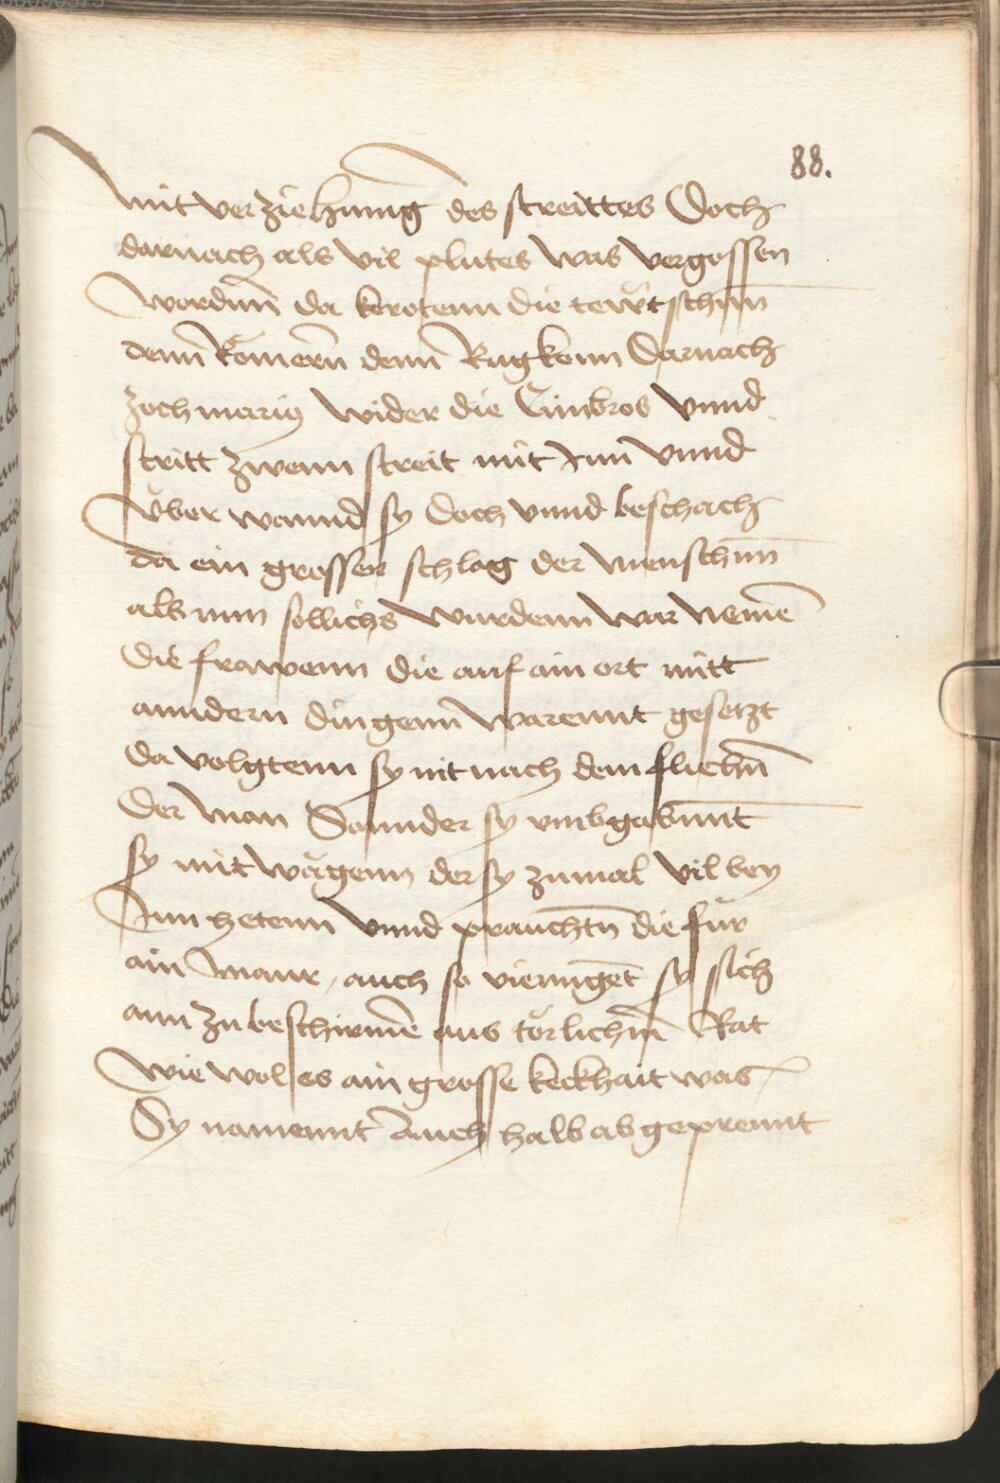 88.
mit verziehunng des streittes Doch
darnach als vil plutes was vergossen
wordnn̄ da kerotenn die tewtschnn̄
denn Römern̄ denn Rugkenn Darnach
zoch marius wider die Cimbros vnnd
stritt zwenn streit mit Inn vnnd
vͤber wannd sy Doch vnnd beschach
da ein grosser schlag der menschnn̄
als nun sollichs wurdenn war nemē
die frawenn die auf ain ort mitt
anndern dingenn warennt gesetzt
da volgtenn sy nit nach dem fliehn̄
der man Sonnder sy vmbgabnnt̄
sy mit wägenn der sy zumal vil bey
Inn hetenn vnnd prauchtn̄ die für
ain maur, auch so vermgēt sy sich
ann zu beschirmē aus törlichm̄ Rat
wie wol es ain grosse keckhait was
Sy namennt Auch halb ab geprennt